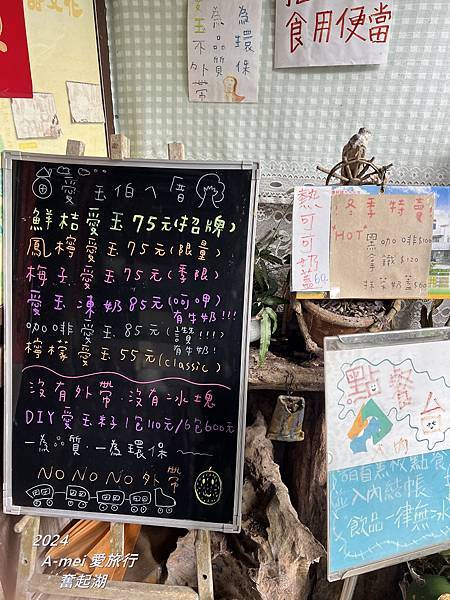 愛玉不外帶
為品質
為環保
食用便當
愛玉伯ㄟ厝
鮮桔愛玉 75元(招牌)
鳳檸愛玉 75元(限量)
梅子愛玉 75元(季限)
愛玉凍奶 85元(呵呷!!!)
有牛奶
咖啡愛玉 85元(讚!!!)
有牛奶!
檸檬愛玉 55元(classic)
沒有外帶．沒有冰塊
DIY愛玉籽/1包110元/6包600元
一為品質．一為環保
NO NO NO 外帶
熱可可奶蓋60
冬季特賣
HOT
黑咖啡$100
拿鐵$120
抹茶奶蓋$60
點餐
入內
請自黑板點餐
入內結帳
飲品一律無冰
2024
A-mei 愛旅行
奮起湖